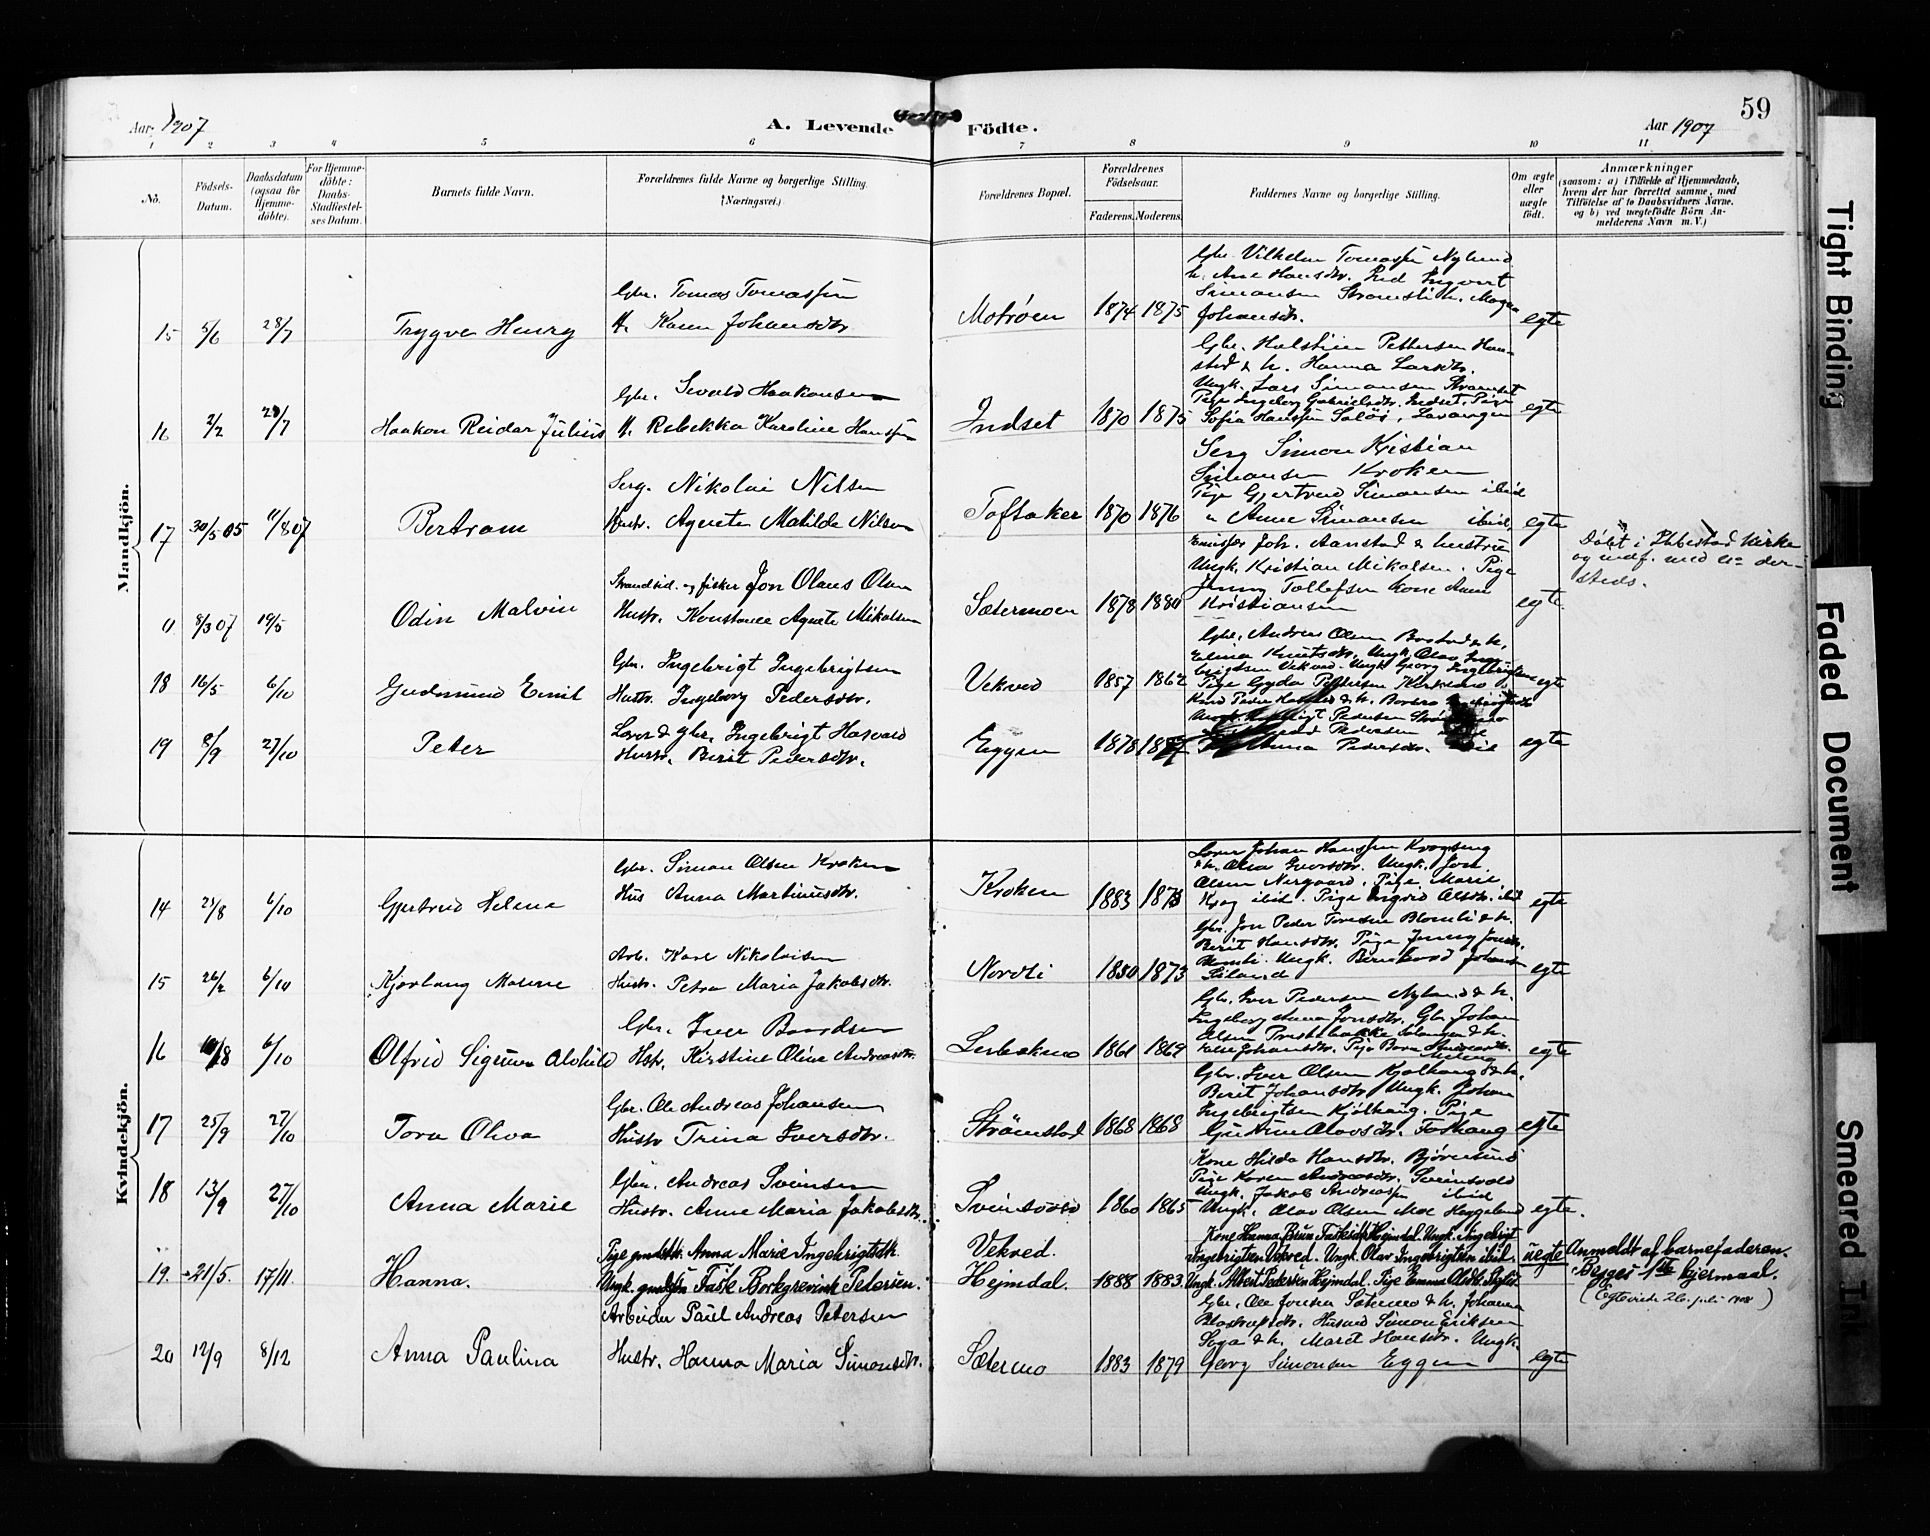 59
Aar 1907
A. Levende Födte.
Aar 1907
1 2 3 4 5 6 7 8 9 10 11
No.
Födsels-Datum.
Daabsdatum (ogsaa för Hjemmedöbte).
For Hjemmedöbte: Daabs-Stadfæstelses Datum.
Barnets fulde Navn.
Forældrenes fulde Navne og borgerlige Stilling. (Næringsvei.)
Forældrenes Bopæl.
Forældrenes Födselsaar.
Faderens. Moderens.
Faddernes Navne og borgerlige Stilling.
Om ægte eller uægte födt.
Anmærkninger
(saasom: a) i Tilfælde af Hjemmedaab, hvem der har forrettet samme, med Tilföielse af to Daabsvidners Navne, og b) ved uægtefödte Börn Anmelderens Navn m. V.)
Mandkjön.
15 5/6 28/7 Trygve Henry
Gbr. Tomas Tomassen
H. Karen Johansdtr.
Motröen 1874 1875
Gbr. Vilhelm Tomassen Nylund
h. Ane Hansdtr.
Simonsen
Johansdtr.
egte
16 2/2 29/7 Haakon Reidar Julius
Gbr. Sivald Haakonsen
H. Rebekka Karoline Hanssen
Indset 1870 1875
Gbr. Halstein Pettersen
h. Hanna Larsdtr.
Ungk. Lars Simonsen
Pige Ingeborg Gabrielsdtr. Indset. Pige
Sofia Hanssen Salösi, Lavangen
egte
17 30/5 05 11/8 07 Bertram
Serg. Nikolai Nilsen
Hustr. Agnete Matilde Nilsen
Toftaker 1870 1876
Serg Simon Kristian
Simonsen Kroken
Pige Gjertrud Simonsen ibid
" Anne Simonsen ibid.
egte
Döbt i Ibbestad Kirke
og indf. med no dersteds.
0 8/3 07 19/5 Odin Malvin
Strandsid. og fisker Jon Olaus Olsen
Hustr. Konstance Agnete Mikalsen
Sætermoen 1878 1880
Joh. Aanstad & hustru
Ungk. Kristian Mikalsen. Pige
Jenny Tollefsen Kone Anne
Kristiansen
egte
18 16/5 6/10 Gudmund Emil
Gbr. Ingebrigt Ingebrigtsen
Hustr. Ingeborg Pedersdtr.
Vekved 1857 1862
Gbr. Andreas Olsen
Elina Knutsdtr. Ungk. Olav
Vekved. Ungk. Georg
Pige Gyda Pettersen
egte
19 8/9 27/10 Peter
Lærer & gbr. Ingebrigt Hasvold
Hustr. Berit Pedersdtr.
Eggen 1878
Anna Pedersdtr. ibid
egte
Kvindekjön.
14 21/8 6/10 Gjertrud Helena
Gbr. Simon Olsen Kroken
Hus Anna Martinusdtr.
Kroken 1883 1873
Lærer Johan Hanssen
& h. Olea Iversdtr. Ungk. Jon
Olsen Nergaard, Pige Marie
Krog ibid. Pige Ingrid Olsdtr. ibid
egte
15 26/2 6/10 Kjærlaug Malene
Arb. Karl Nikolaisen
Hustr. Petra Maria Jakobsdtr.
Nordli 1880 1873
Gbr. Jon Peder Toresen Blomli & h.
Berit Hansdtr. Pige Jenny Jonsdtr.
Blomli Ungk. Bernhard Johansen
egte
16 6/10 Olfrid Sigrun Alvhild
Gbr. Iver Baardsen
Hstr. Kirstine Oline Andreasdtr.
1861 1869
Gbr. Iver Pedersen Nyland & h.
Ingeborg Anna Jonsdtr. Gbr. Johan
Olsen Prestbakke Salangen & h.
egte
17 25/9 27/10 Tora Oliva
Gbr. Ole Andreas Johansen
Hustr Trina Iversdtr.
Strömstad 1868 1868
Gbr. Iver Olsen Kjölhaug & h.
Berit Johansdtr Ungk. Johan
Ingebrigtsen Kjölhaug. Pige
Gudrun Olavsdtr. Foshaug
egte
18 13/9 27/10 Anna Marie
Gbr. Andreas Sveinsen
Hustr. Anne Maria Jakobsdtr.
Sveinsvold 1860 1865
Kone Hilda Hansdtr. Bjørnsund
Pige Karen Andreasdtr. Sveinsvold
Ungk. Jakob Andreassen ibid
Ungk. Olav Olsen Moe Heggelund
egte.
19. 21/5. 17/11. Hanna.
Pige gmdtr. Anna Marie Ingebrigtsdtr.
Ungk. gmdsøn Faste Borkgrevink Petersen.
Vekved.
Hejmdal. 1888 1883
Kone Hanna Bruun Fastesdtr Hejmdal. Ungk. Ingebrigt
Ingebrigtsen Vekved. Ungk. Olav Ingebrigtsen ibid.
Ungk. Albert Pedersen Hejmdal. Pige Emma
uegte
Anmeldt af barnefaderen.
Begges 1ste lejermaal.
(Egteviede 26. juli 1908)
20 12/9 8/12 Anna Paulina
Arbeider Paul Andreas Petersen
Hustr. Hanna Maria Simonsdtr.
Sætermo 1883 1879
Gbr. Ole Jonsen Sætermo & h. Johanna
Husmd Simon Eriksen
& h. Maret Hansdtr. Ungk.
Georg Simonsen Eggen
egte
Tight Binding
Faded Document
Smeared Ink